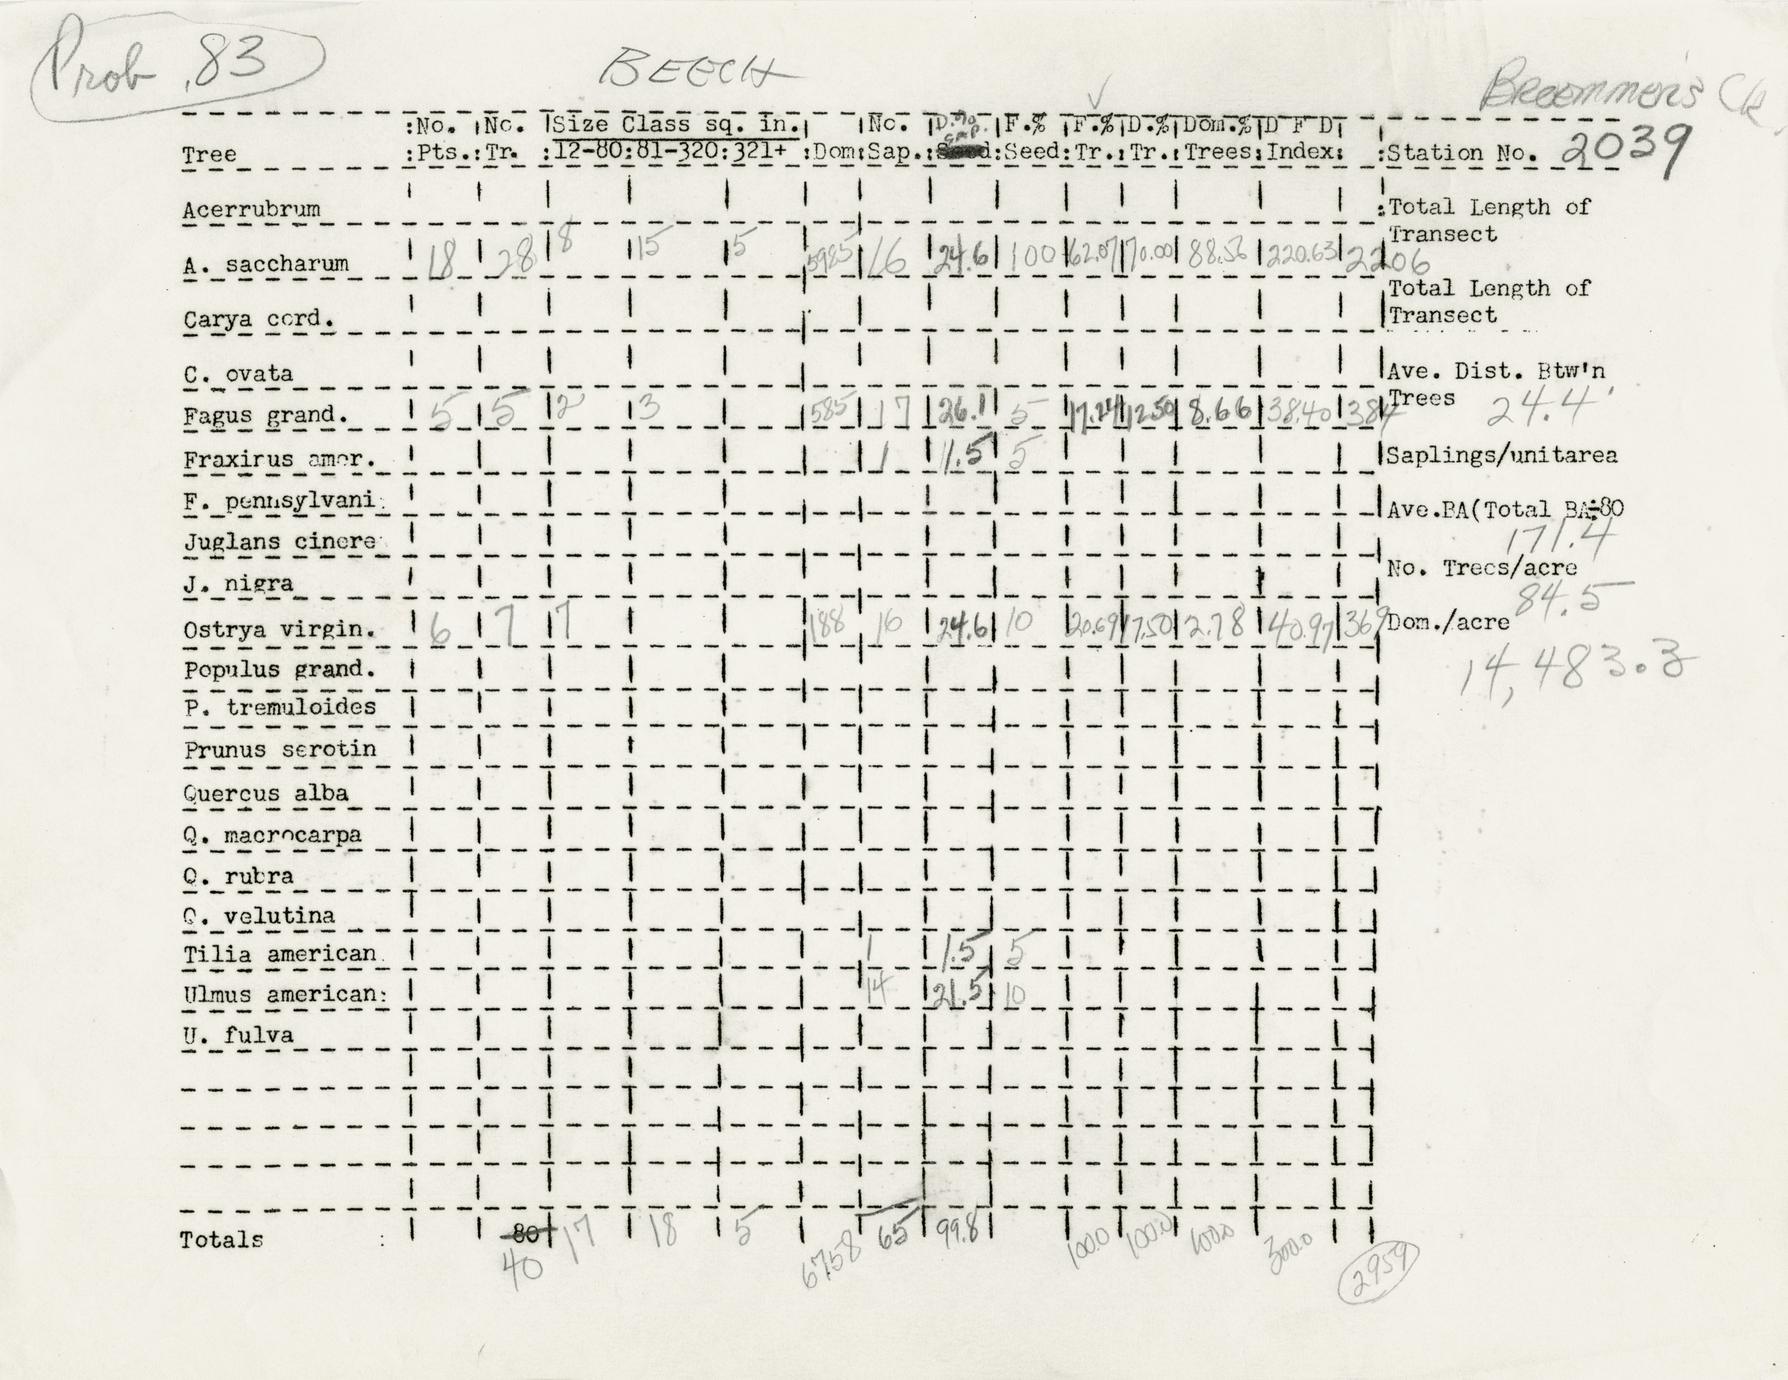 Prob .83
BEECH
Tree :No. Pts. :No. Tr. Size Class sq. in. :12-80:81-320:321+ :Dom: No. Sap.: D.% Sap. F.% Seed: F.% Tr.: D.% Tr.: Dom.% Trees: D F D Index: :Station No. 2039
Acerrubrum
:Total Length of
Transect
A. saccharum 18 28 8 15 5 5985 16 24.6 100 62.07 70.00 88.56 220.63 2206
Total Length of
Transect
Carya cord.
C. ovata
Ave. Dist. Btw'n
Trees 24.4'
Fagus grand. 5 5 2 3 585 17 26.1 5 17.24 12.50 8.66 38.40 384
Fraxirus amer. 1 1.5 5
Saplings/unitarea
F. pennsylvani:
Ave.BA(Total BA÷80
171.4
Juglans cinere
No. Trees/acre
84.5
J. nigra
Ostrya virgin. 6 7 7 188 16 24.6 10 20.69 17.50 2.78 40.97 369
Dom./acre
14,483.3
Populus grand.
P. tremuloides
Prunus serotin
Quercus alba
Q. macrocarpa
Q. rubra
Q. velutina
Tilia american. 1 1.5 5
Ulmus american: 14 21.5 10
U. fulva
Totals : 80 17 18 5 6758 65 99.8 100.0 100.0 100.0 300.0 2959
40